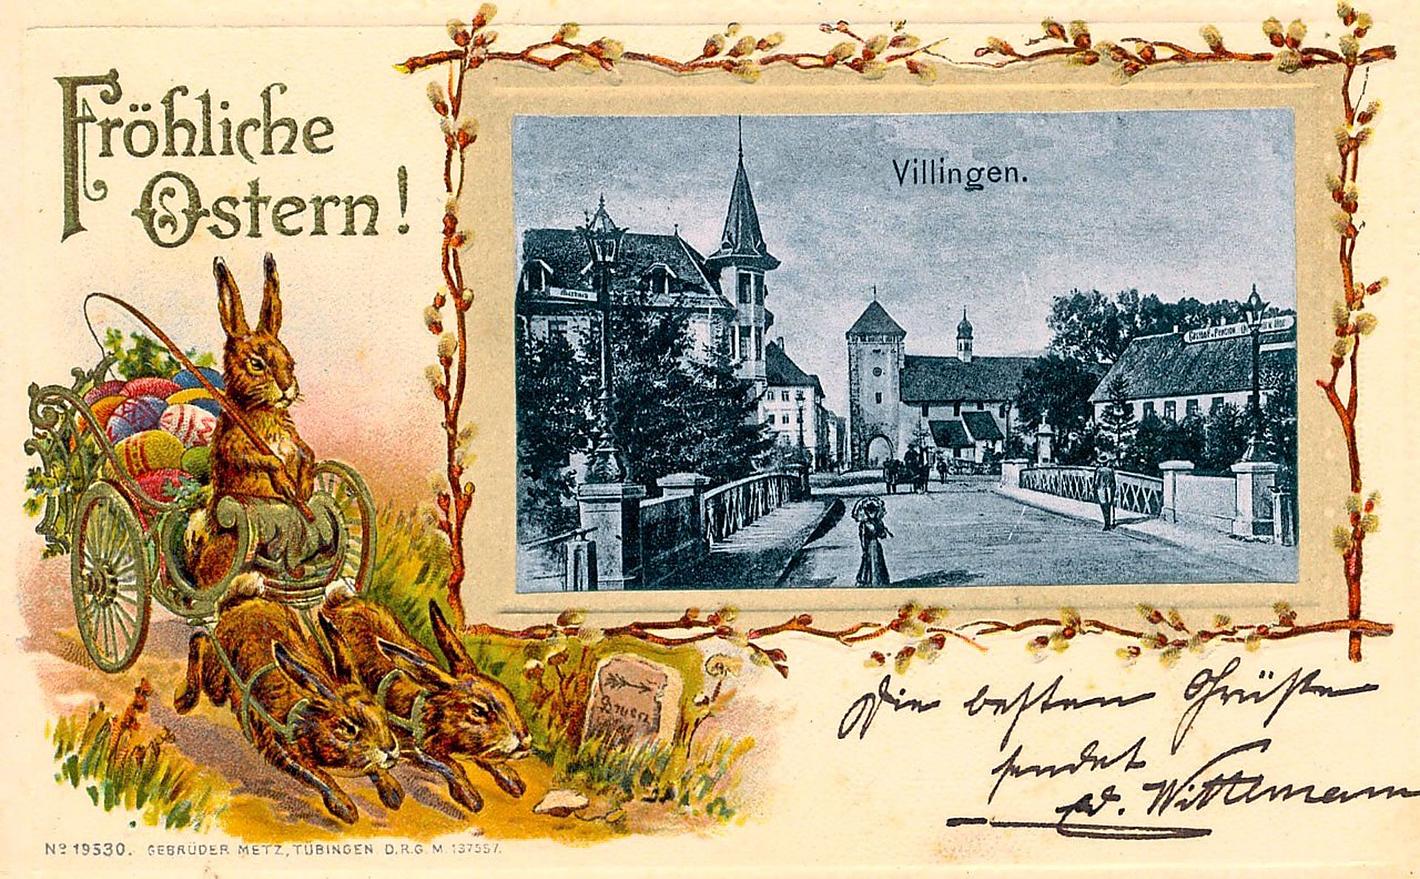 Fröhliche
Ostern!
Villingen.
Die besten Grüße
sendet
Wittemann
Nº 19530. GEBRÜDER METZ, TÜBINGEN D.R.G.M. 137557.